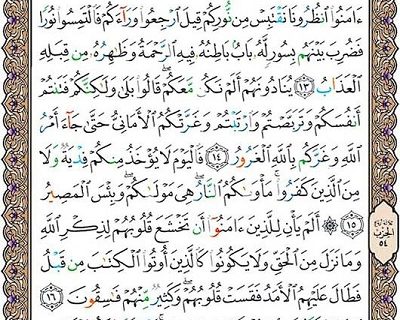 ءَامَنُوا۟ ٱنظُرُونَا نَقْتَبِسْ مِن نُّورِكُمْ قِيلَ ٱرْجِعُوا۟ وَرَآءَكُمْ فَٱلْتَمِسُوا۟ نُورًا
فَضُرِبَ بَيْنَهُم بِسُورٍ لَّهُۥ بَابٌۢ بَاطِنُهُۥ فِيهِ ٱلرَّحْمَةُ وَظَٰهِرُهُۥ مِن قِبَلِهِ
ٱلْعَذَابُ ١٣ يُنَادُونَهُمْ أَلَمْ نَكُن مَّعَكُمْ ۖ قَالُوا۟ بَلَىٰ وَلَٰكِنَّكُمْ فَتَنتُمْ
أَنفُسَكُمْ وَتَرَبَّصْتُمْ وَٱرْتَبْتُمْ وَغَرَّتْكُمُ ٱلْأَمَانِىُّ حَتَّىٰ جَآءَ أَمْرُ
ٱللَّهِ وَغَرَّكُم بِٱللَّهِ ٱلْغَرُورُ ١٤ فَٱلْيَوْمَ لَا يُؤْخَذُ مِنكُمْ فِدْيَةٌ وَلَا
مِنَ ٱلَّذِينَ كَفَرُوا۟ ۚ مَأْوَىٰكُمُ ٱلنَّارُ ۖ هِىَ مَوْلَىٰكُمْ ۖ وَبِئْسَ ٱلْمَصِيرُ
١٥ ۞ أَلَمْ يَأْنِ لِلَّذِينَ ءَامَنُوٓا۟ أَن تَخْشَعَ قُلُوبُهُمْ لِذِكْرِ ٱللَّهِ
وَمَا نَزَلَ مِنَ ٱلْحَقِّ وَلَا يَكُونُوا۟ كَٱلَّذِينَ أُوتُوا۟ ٱلْكِتَٰبَ مِن قَبْلُ
فَطَالَ عَلَيْهِمُ ٱلْأَمَدُ فَقَسَتْ قُلُوبُهُمْ ۖ وَكَثِيرٌ مِّنْهُمْ فَٰسِقُونَ ١٦
الحزب
٥٤